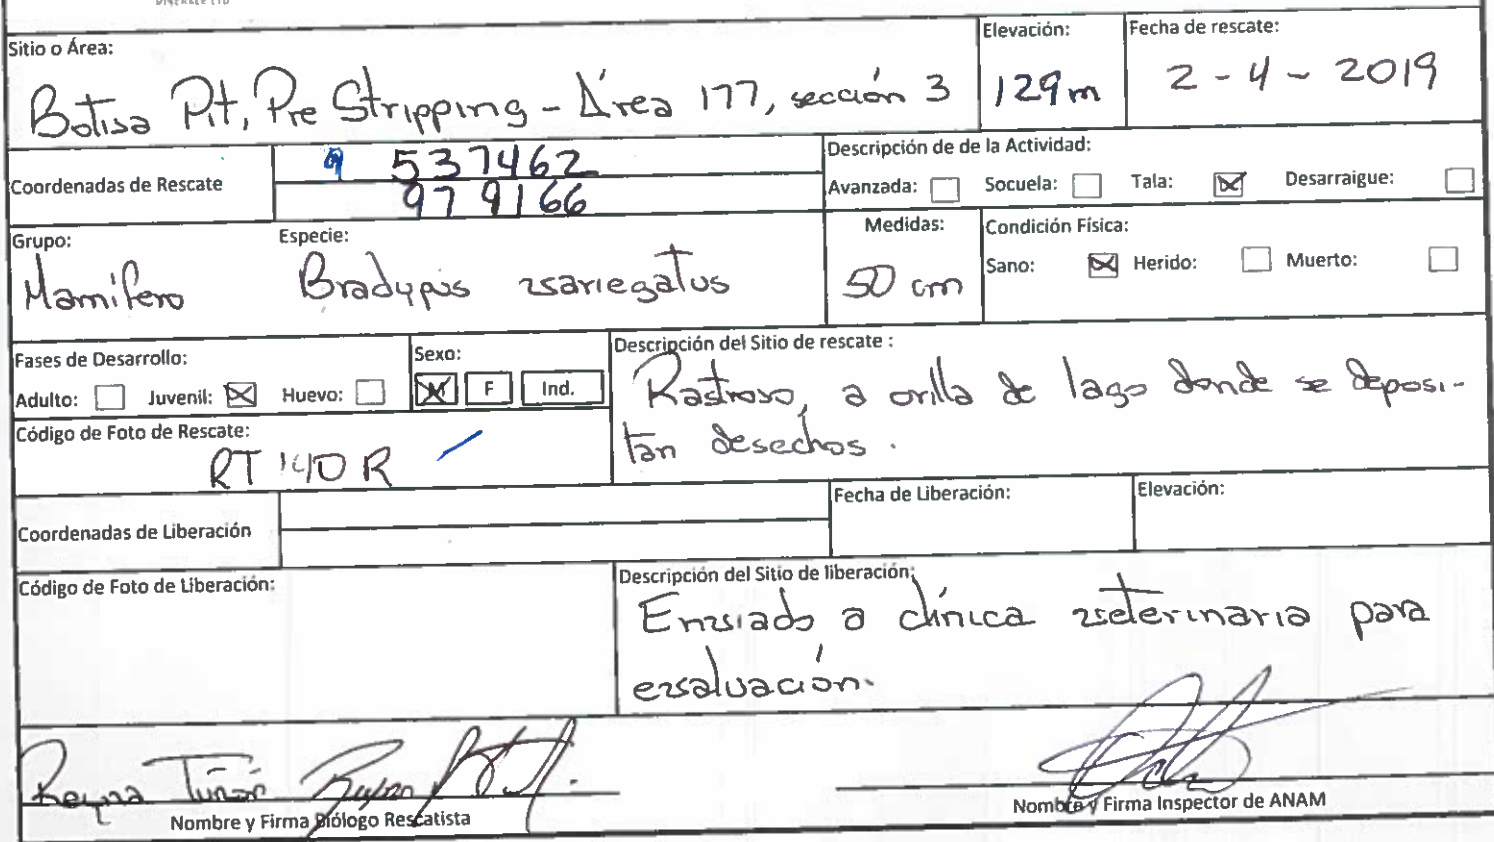 MINERALS LTD
Sitio o Área:
Botija Pit, Pre Stripping - Área 177, sección 3
Elevación:
129 m
Fecha de rescate:
2 - 4 - 2019
Coordenadas de Rescate
537462
979166
Descripción de de la Actividad:
Avanzada: Socuela: Tala: ☒ Desarraigue:
Grupo:
Mamífero
Especie:
Bradypus variegatus
Medidas:
50 cm
Condición Física:
Sano: ☒ Herido: Muerto:
Fases de Desarrollo:
Adulto: Juvenil: ☒ Huevo:
Sexo:
M F Ind.
Descripción del Sitio de rescate :
Rastrojo, a orilla de lago donde se deposi-
tan desechos.
Código de Foto de Rescate:
RT 140 R
Coordenadas de Liberación
Fecha de Liberación:
Elevación:
Código de Foto de Liberación:
Descripción del Sitio de liberación:
Enviado a clínica veterinaria para
evaluación.
Reyna Tuñón
Nombre y Firma Biólogo Rescatista
Nombre y Firma Inspector de ANAM